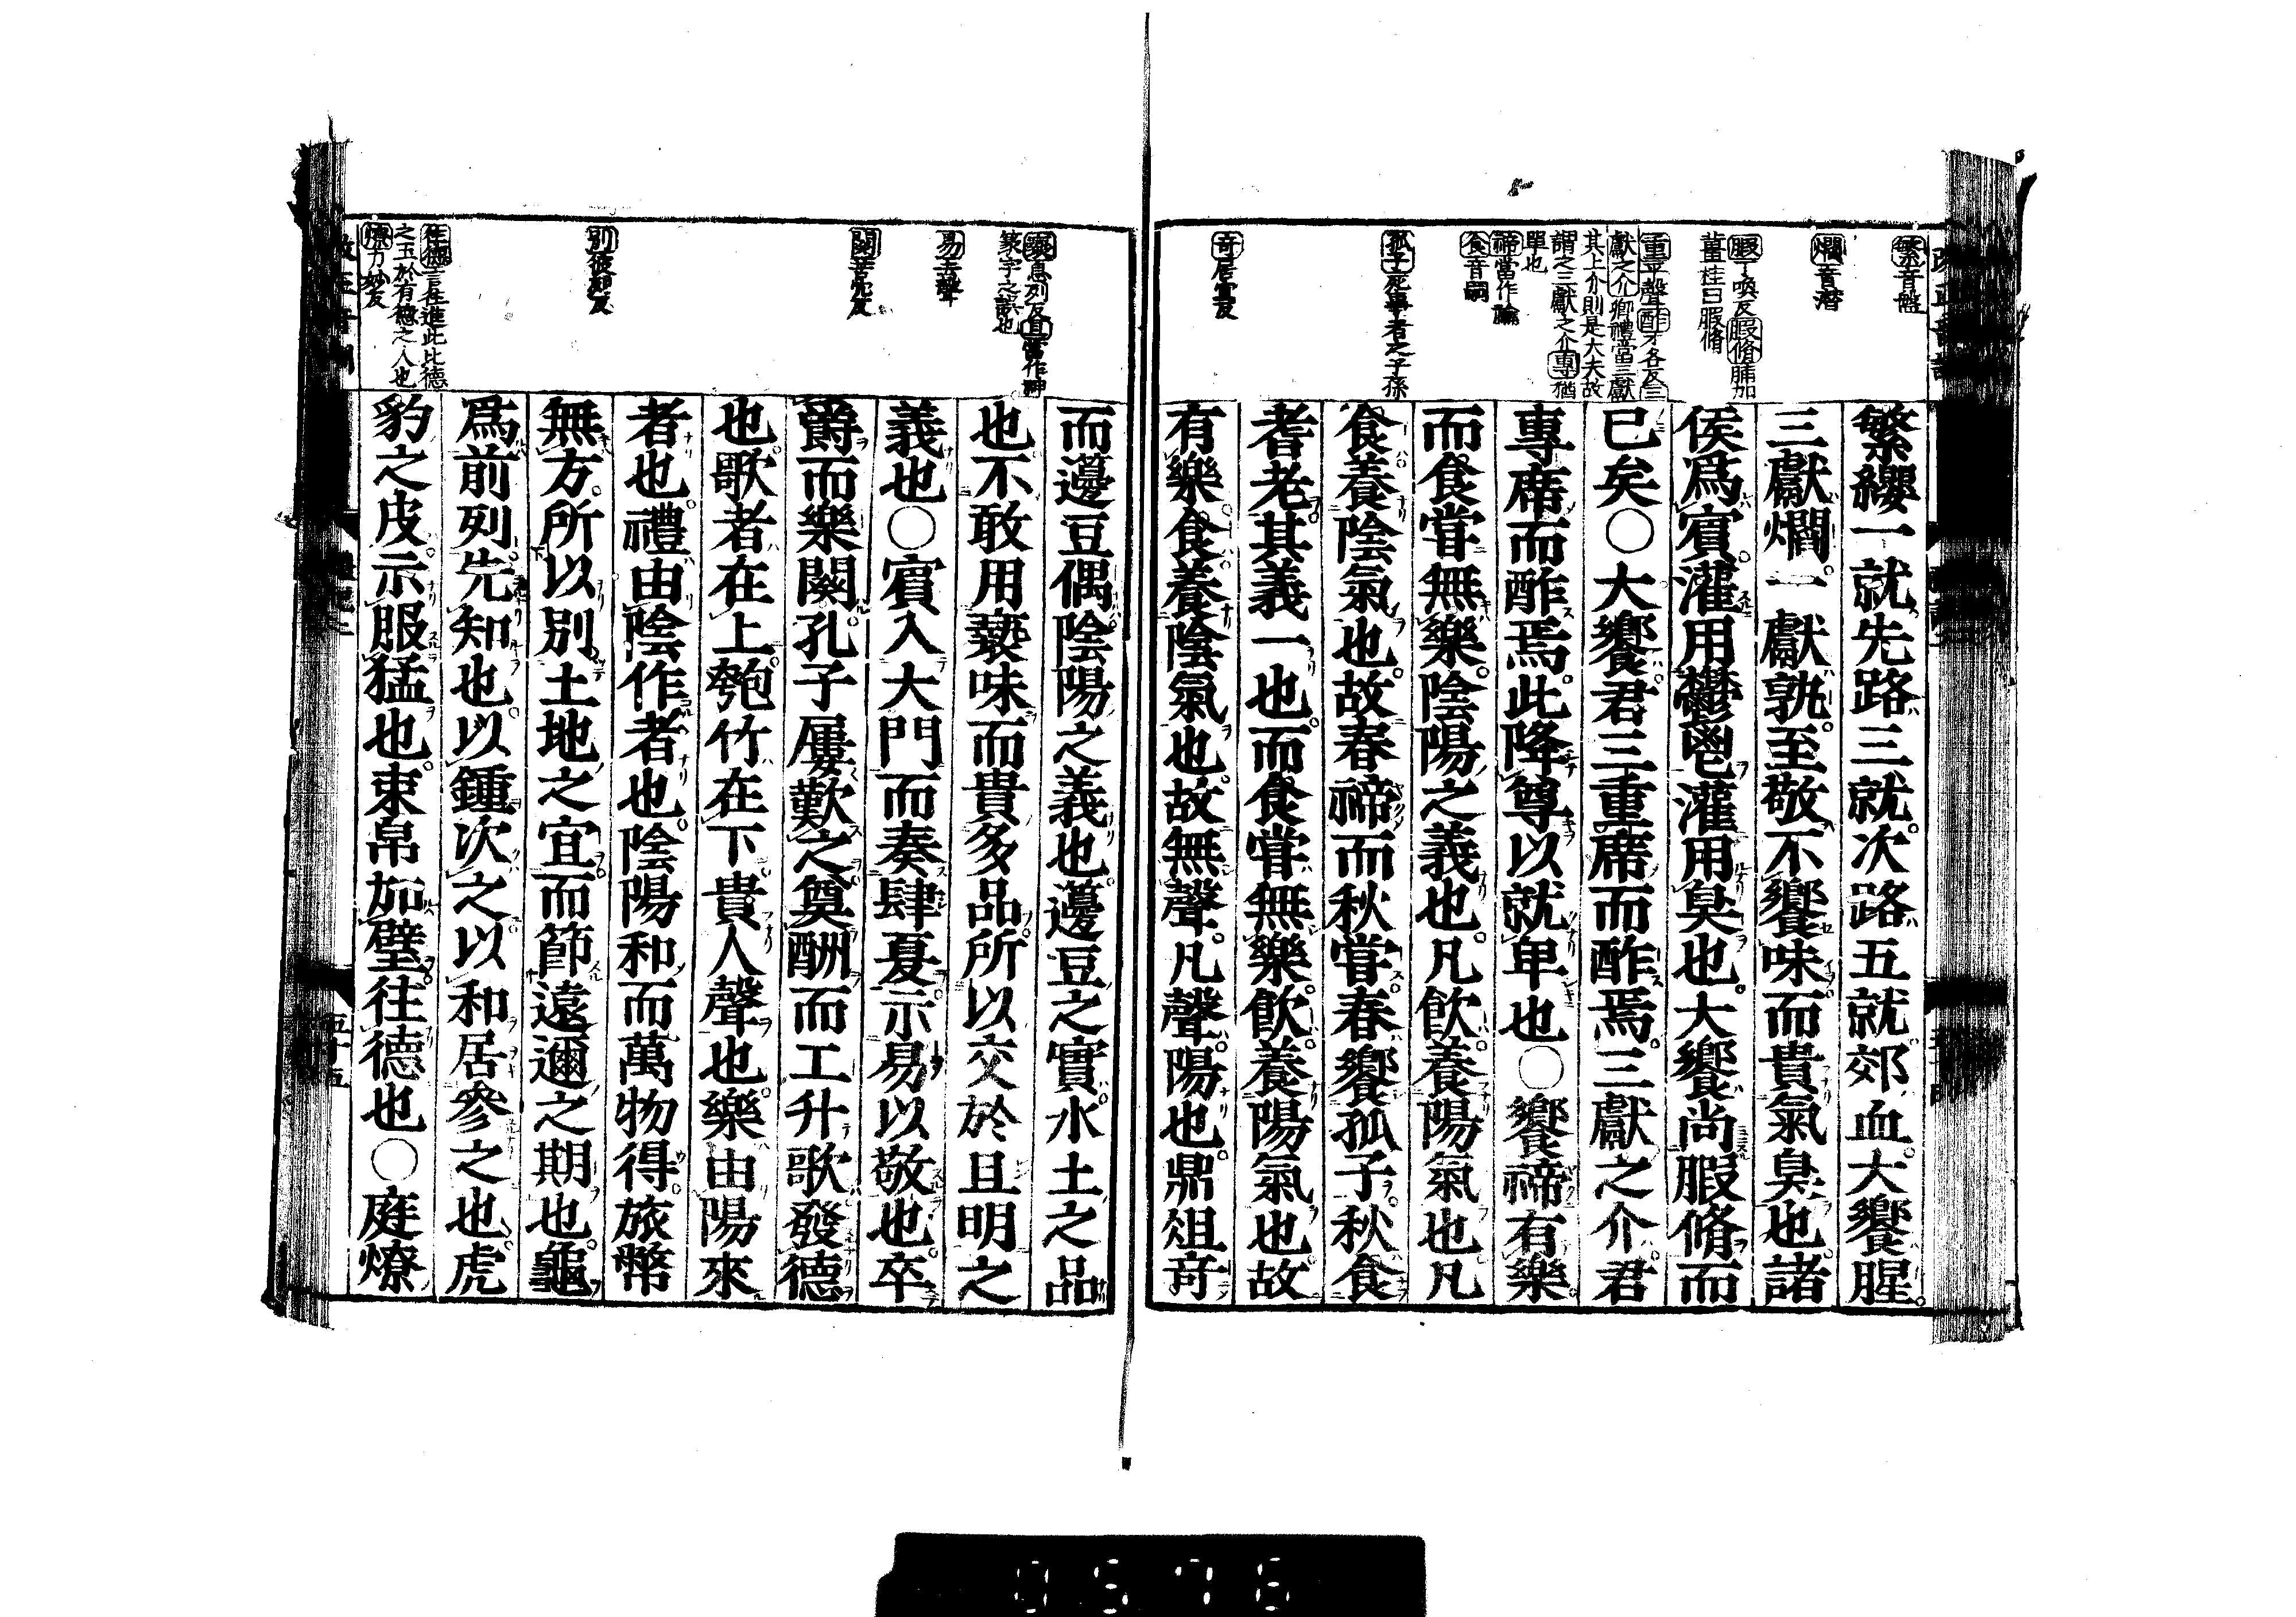 繁音盤
爓音潛
腶丁喚反腶脩脯加
薑桂曰腶脩
重平聲酢才各反三
獻之介卿禮當三獻
其上介則是大夫故
謂之三獻之介專猶
單也
禘當作禴
食音嗣
孤子死事者之子孫
奇居宜反
繁纓一就先路三就次路五就郊血大饗腥
三獻爓一獻孰至敬不饗味而貴氣臭也諸
侯爲賓灌用鬱鬯灌用臭也大饗尚腶脩而
已矣○大饗君三重席而酢焉三獻之介君
專席而酢焉此降尊以就卑也○饗禘有樂
而食甞無樂陰陽之義也凡飮養陽氣也凡
食養陰氣也故春禘而秋甞春饗孤子秋食
耆老其義一也而食甞無樂飮養陽氣也故
有樂食養陰氣也故無聲凡聲陽也鼎俎奇
褻息列反且當作神
篆字之誤也
易去聲
闋苦穴反
別彼列反
往德言往進此比德
之玉於有德之人也
燎力妙反
而籩豆偶陰陽之義也籩豆之實水土之品
也不敢用褻味而貴多品所以交於且明之
義也○賓入大門而奏肆夏示易以敬也卒
爵而樂闋孔子屢歎之奠酬而工升歌發德
也歌者在上匏竹在下貴人聲也樂由陽來
者也禮由陰作者也陰陽和而萬物得旅幣
無方所以別土地之宜而節遠邇之期也龜
爲前列先知也以鍾次之以和居參之也虎
豹之皮示服猛也束帛加璧往德也○庭燎
五十五
0576